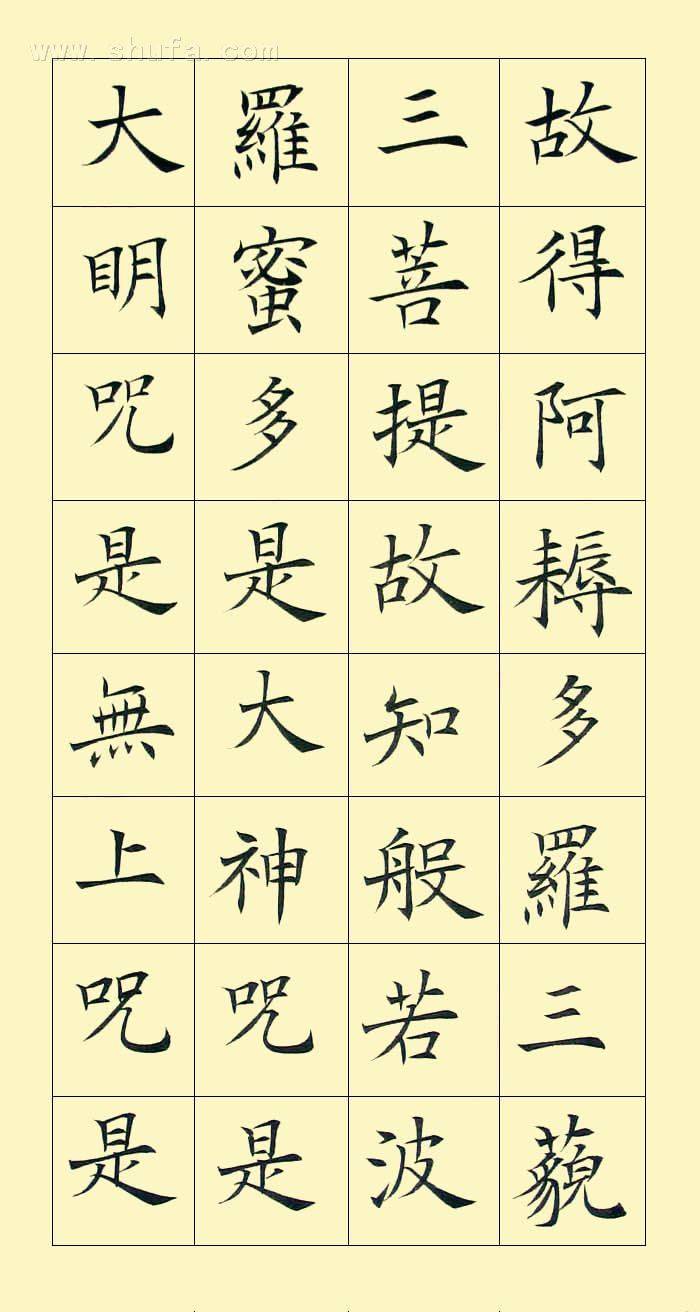 www.shufa.com
故得阿耨多羅三藐
三菩提故知般若波
羅蜜多是大神咒是
大明咒是無上咒是